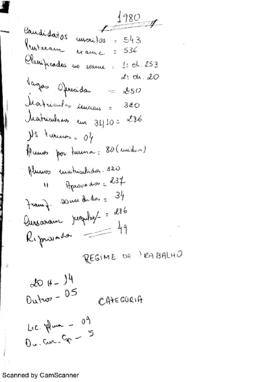 1980
Candidatos inscritos = 543
Fizeram exame = 536
Classificados no exame = 1: ch 153
2: ch 20
Vagas oferecida = 250
Matriculas iniciais = 320
Matriculados em 31/10 = 286
Nº turmas = 04
Alunos por turma: 80 (media)
Alunos matriculados 320
" Aprovados = 237
Transf. concedidas = 34
Cursaram = 286
Reprovados = 49
REGIME DE TRABALHO
20 H - 14
Outros - 05
CATEGORIA
Lic. plena - 09
Scanned by CamScanner